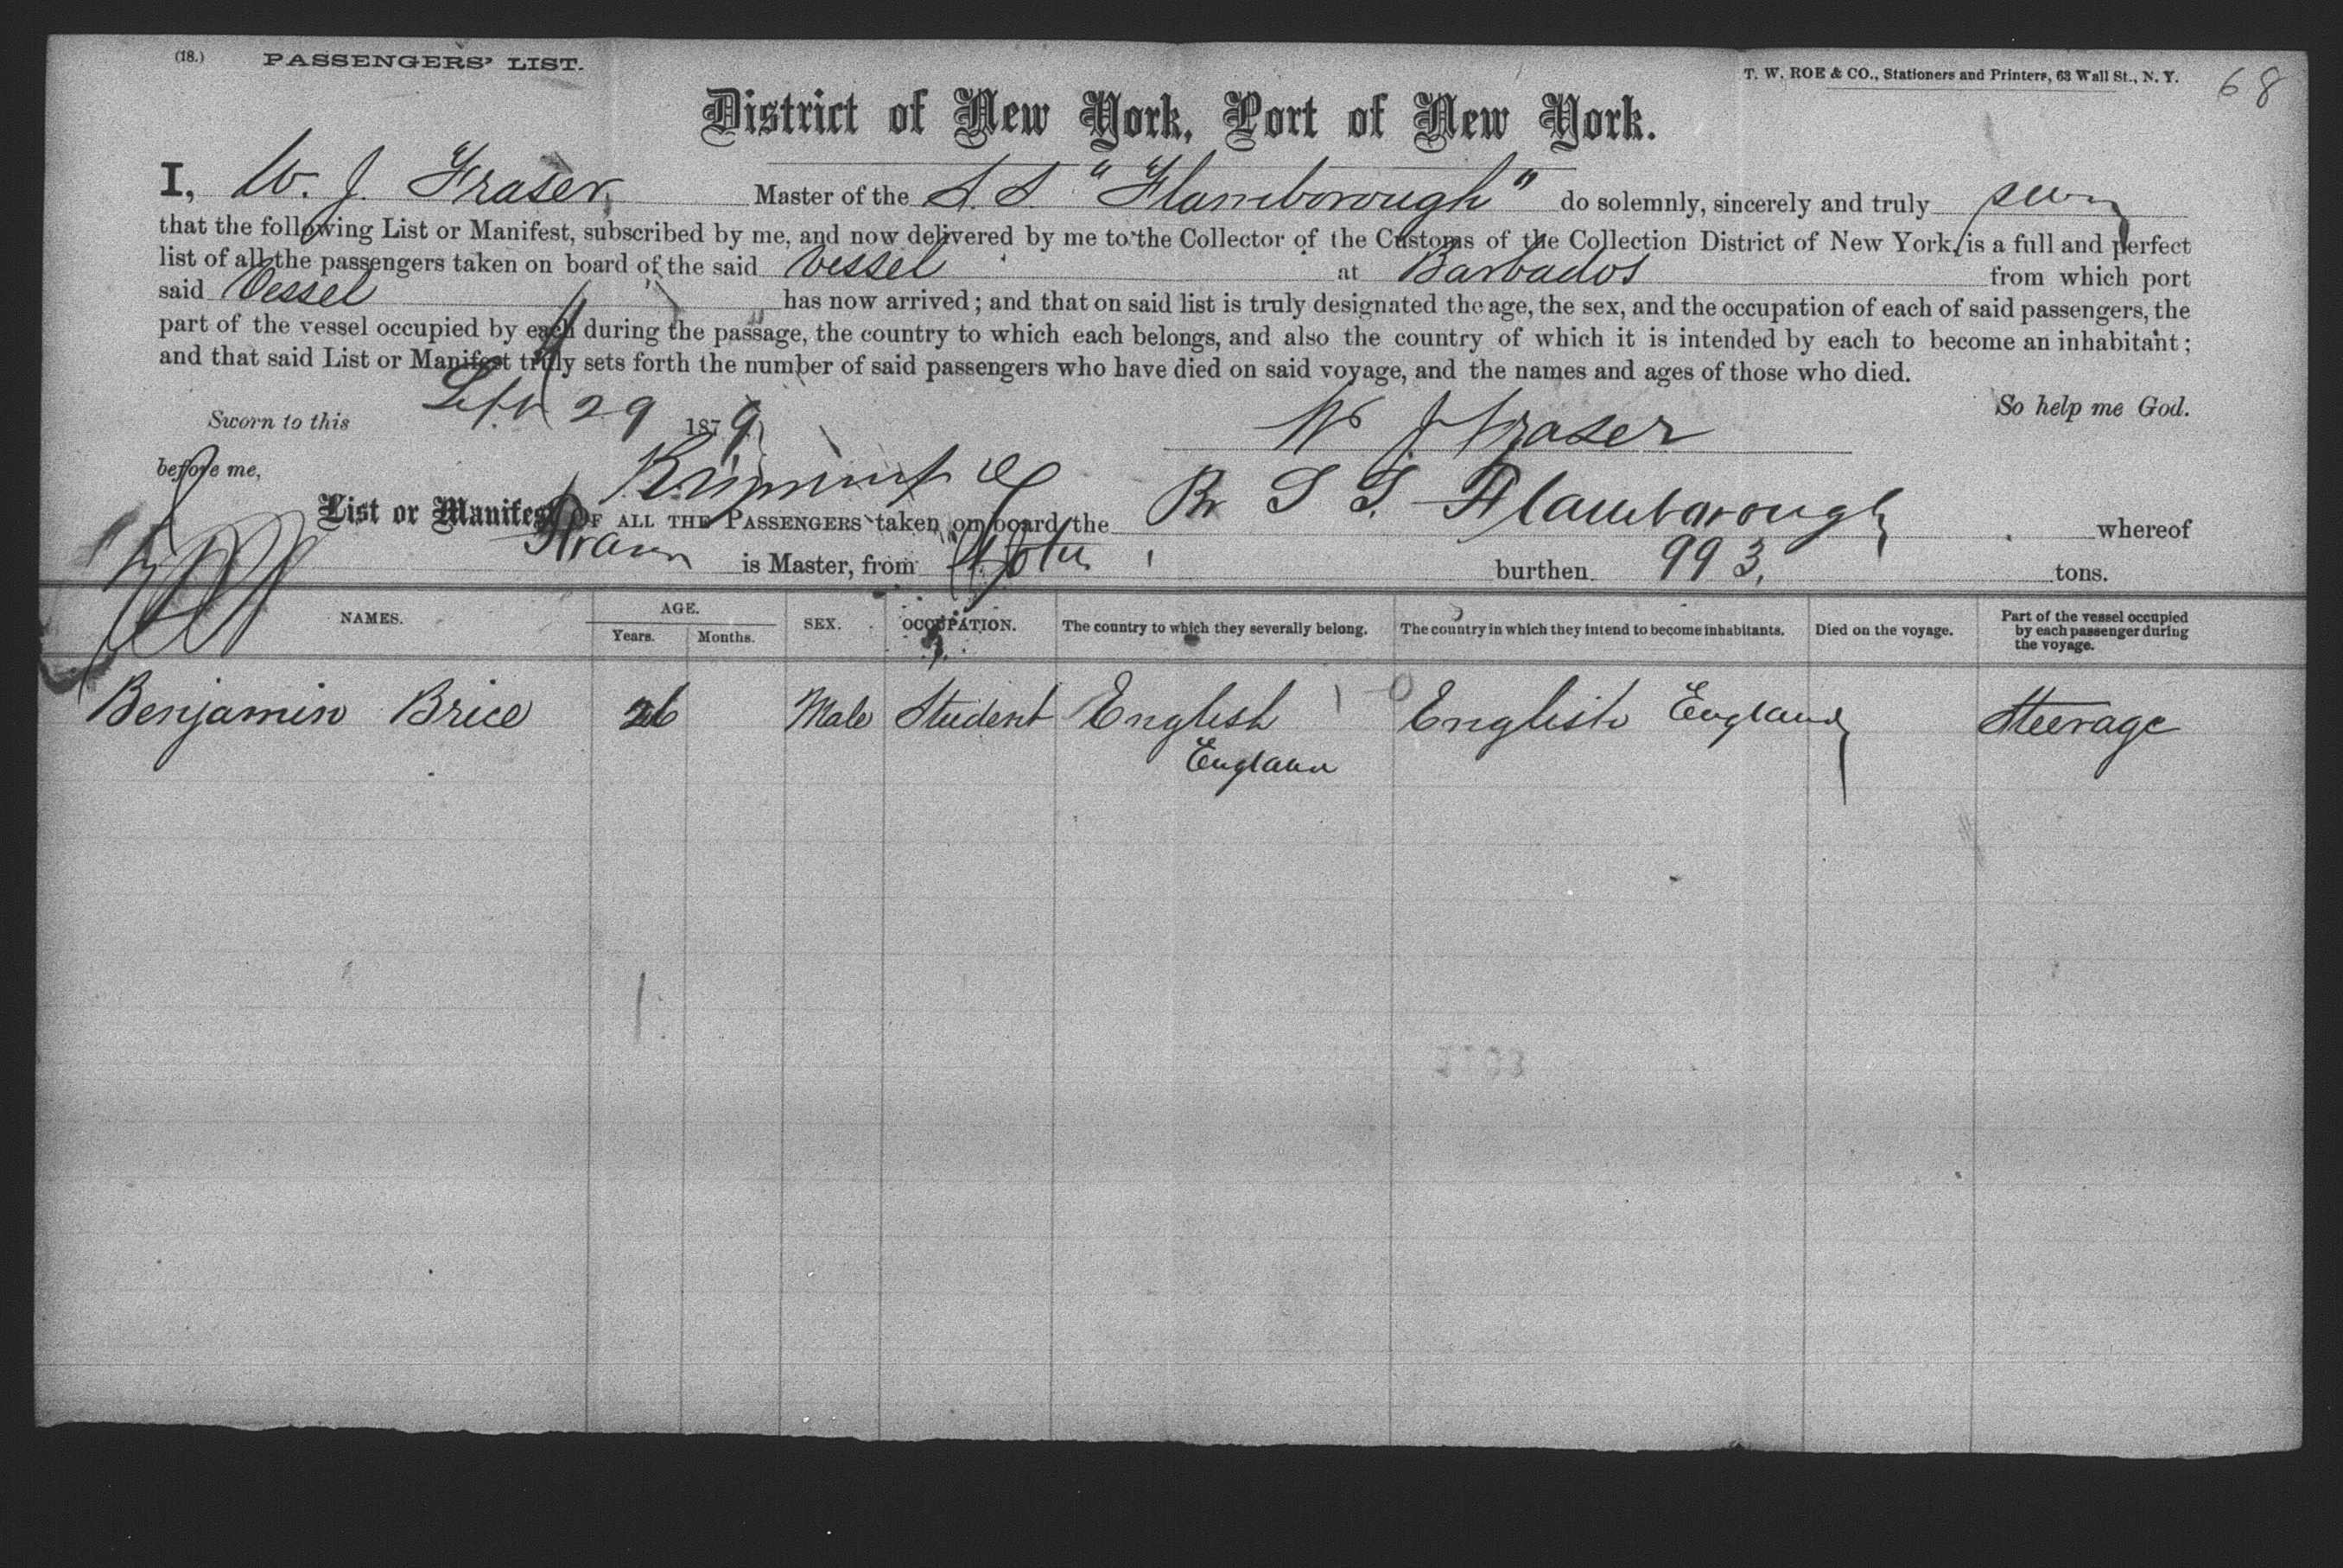 (18.) PASSENGERS' LIST.
T. W. ROE & CO., Stationers and Printers, 63 Wall St., N. Y. 68
District of New York, Port of New York.
I, W. J. Fraser, Master of the S. S. "Flamborough" do solemnly, sincerely and truly
that the following List or Manifest, subscribed by me, and now delivered by me to the Collector of the Customs of the Collection District of New York, is a full and perfect
list of all the passengers taken on board of the said Vessel at Barbados from which port
said Vessel has now arrived; and that on said list is truly designated the age, the sex, and the occupation of each of said passengers, the
part of the vessel occupied by each during the passage, the country to which each belongs, and also the country of which it is intended by each to become an inhabitant;
and that said List or Manifest truly sets forth the number of said passengers who have died on said voyage, and the names and ages of those who died.
So help me God.
Sworn to this Sept 29 1879 W J Fraser
before me,
List or Manifest OF ALL THE PASSENGERS taken on board the Br S S. Flamborough whereof
is Master, from burthen 993. tons.
NAMES. AGE. Years. Months. SEX. OCCUPATION. The country to which they severally belong. The country in which they intend to become inhabitants. Died on the voyage. Part of the vessel occupied by each passenger during the voyage.
Benjamin Brice 26 Male Student English English England Steerage
England